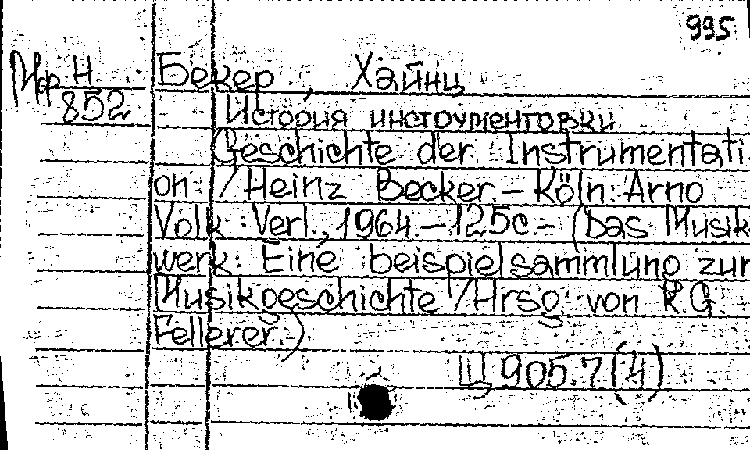 995
Инф Н Бекер, Хайнц
852 История инструментовки
Geschichte der Instrumentati
on. / Heinz Becker – Köln: Arno
Volk Verl., 1964. – 125c – (Das Musik
werk: Eine beispielsammlung zur
Musikgeschichte / Hrsg. von K.G.
Fellerer.)
Ц 905.7(4)